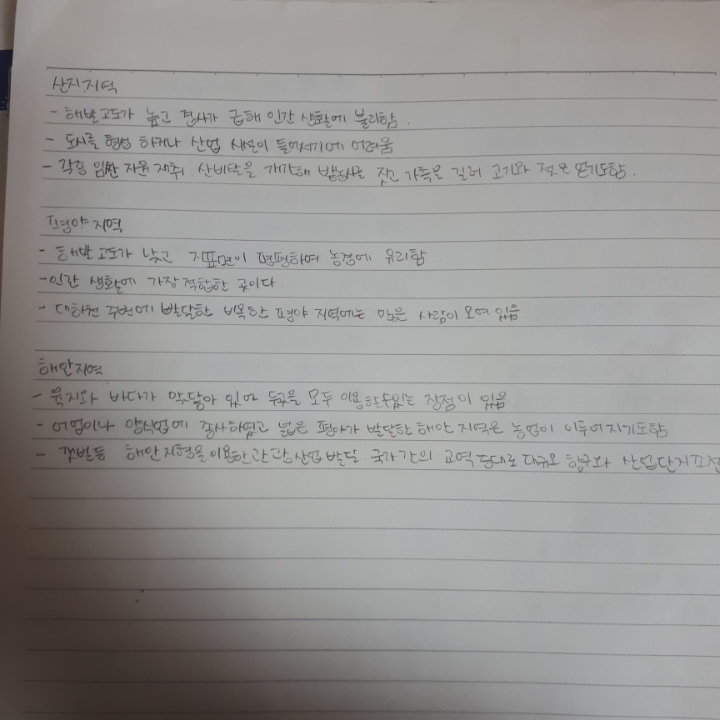 산지지역
- 해발고도가 높고 경사가 급해 인간 생활에 불리함.
- 도시를 형성 하거나 산업 시설이 들어서기에 어려움
- 각종 임산 자원 채취. 산비탈을 개간해 밭농사를 짓고 가축을 길러 고기와 젖을 얻기도함.
평야지역
- 해발 고도가 낮고 지표면이 평평하여 농경에 유리함.
- 인간 생활에 가장 적합한 곳이다.
- 대하천 주변에 발달한 비옥한 평야 지역에는 많은 사람이 모여 있음.
해안지역
- 육지와 바다가 맞닿아 있어 두곳을 모두 이용할수있는 장점이 있음
- 어업이나 양식업에 종사하였고 넓은 평야가 발달한 해안 지역은 농업이 이루어지기도함
- 갯벌등 해안지형을 이용한 관광산업 발달. 국가 간의 교역 증대로 대규모 항구와 산업단지